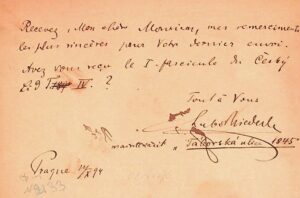 Recevez, Mon cher Monsieur, mes remerciements
les plus sincères pour votre dernier envoi.
Avez vous reçu le I-fascicule du Český
lid IV. ?
Tout à Vous
Lubor Niederle
maintenant „Táborská ulice 1845
Prague X 94